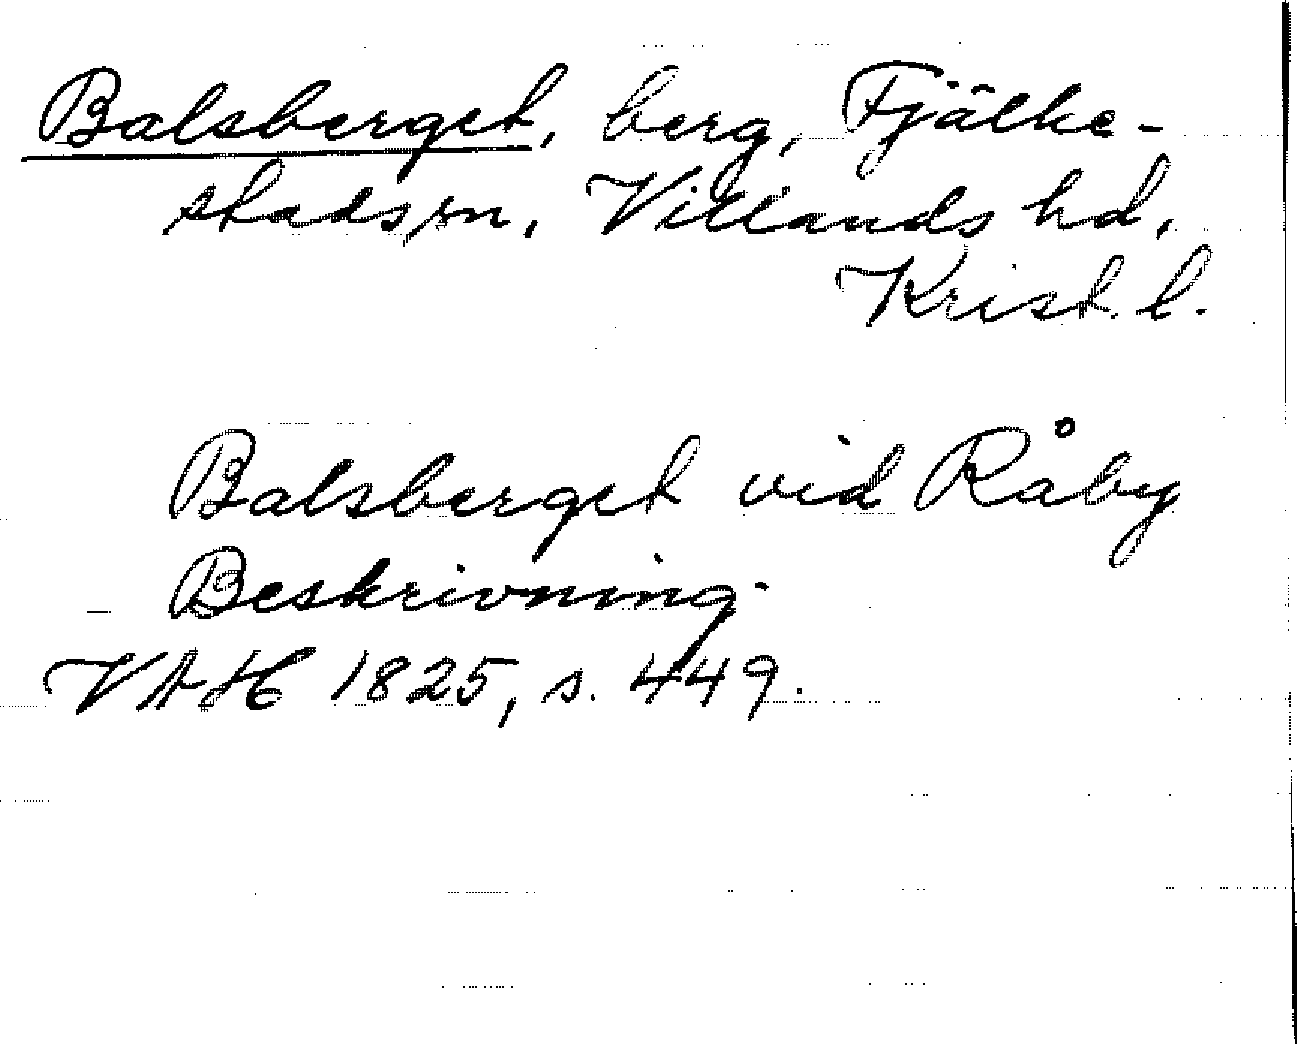 Balsberget, berg, Fjälke-
stads sn, Villands hd,
Krist. l.
Balsberget vid Råby
Beskrivning.
VAH 1825, s. 449.